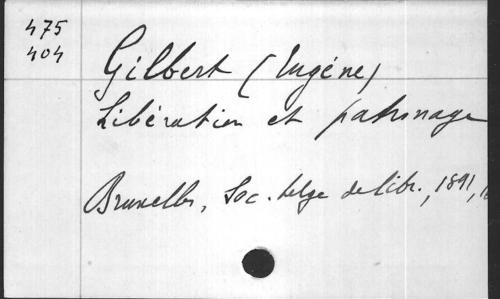 475
404
Gilbert (Eugène)
Libération et patronage
Bruxelles, Soc. belge de libr., 1891,